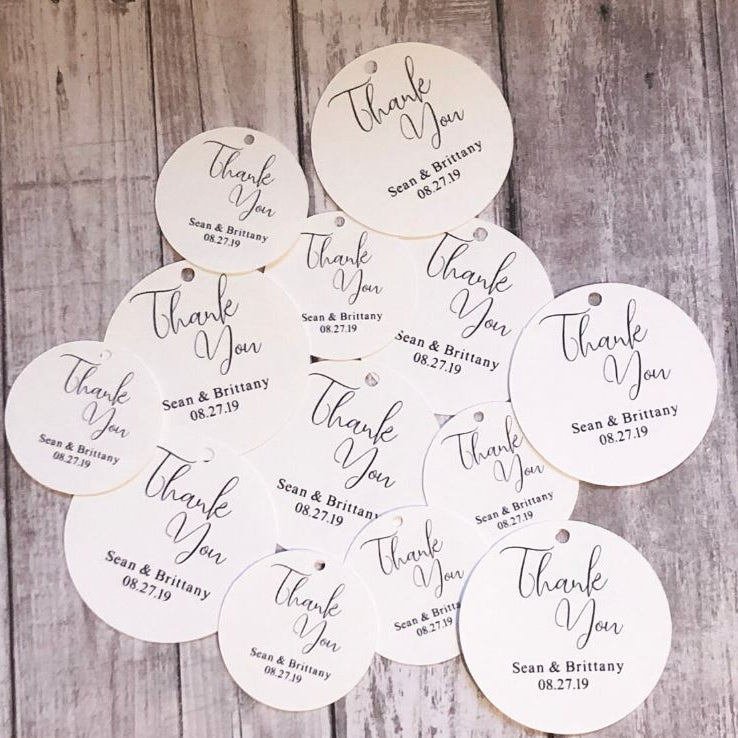 Thank
You
Sean & Brittany
08.27.19
Thank
You
Sean & Brittany
08.27.19
Thank
You
Sean & Brittany
08.27.19
Thank
You
Sean & Brittany
08.27.19
Thank
You
Sean & Brittany
08.27.19
Thank
You
Sean & Brittany
08.27.19
Thank
You
Sean & Brittany
08.27.19
Thank
You
Sean & Brittany
08.27.19
Thank
You
Sean & Brittany
08.27.19
Thank
You
Sean & Brittany
08.27.19
Thank
You
Sean & Britta
08.27.19
Thank
You
Sean & Brittany
08.27.19
Thank
You
Sean & Brittany
08.27.19